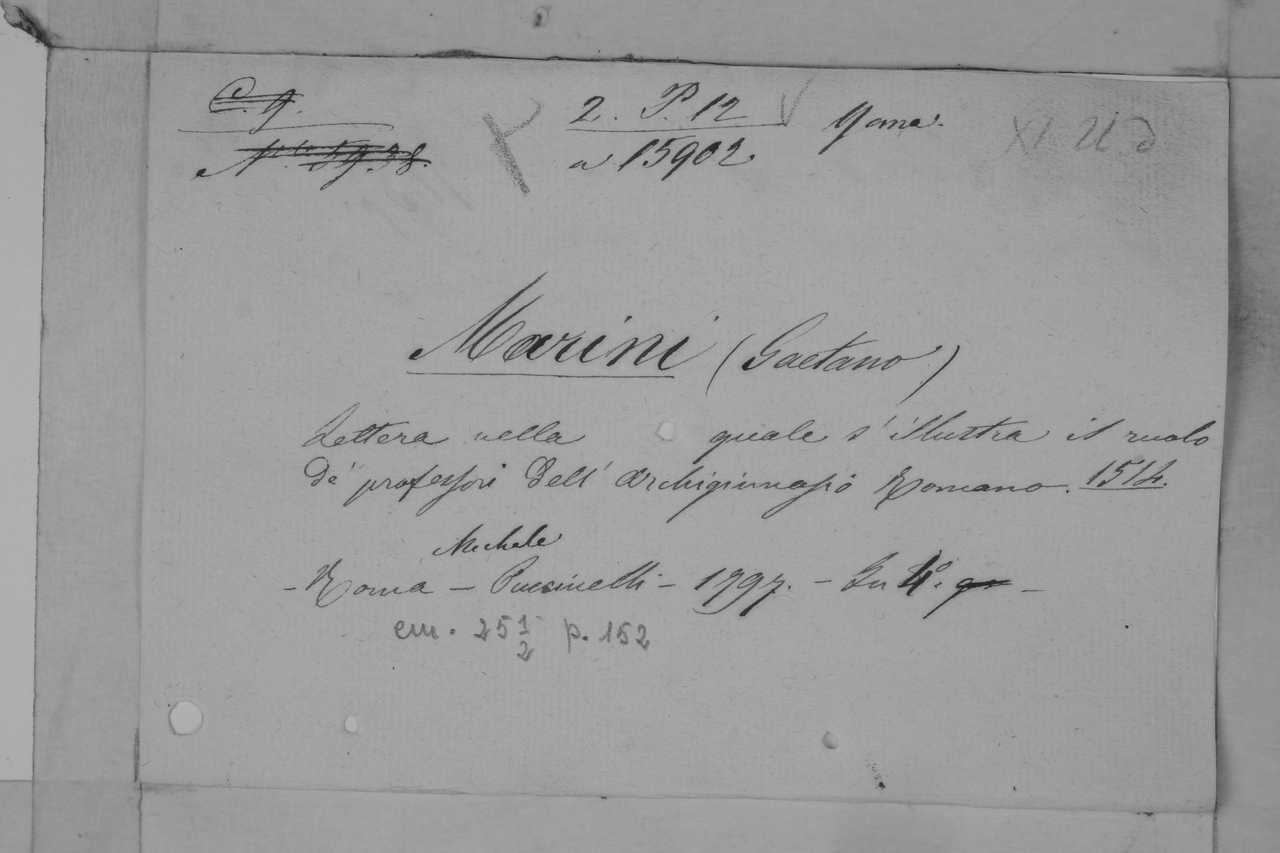 C. 9.
2. P. 12
Roma.
N.º 5938.
a 15902
Marini (Gaetano)
Lettera nella quale s'illustra il ruolo
de' professori dell' Archiginnasio Romano. 1514.
Michele
– Roma – Puccinelli – 1797. – In 4º. gr –
cm. 25 1/2 p. 152